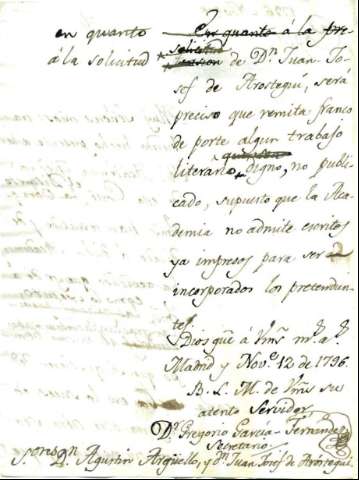 en quanto
á la solicitud
En quanto á la pre-
solicitud
tension de Dn. Juan Jo-
sef de Arostegui, será
preciso que remita franco
de porte algun trabajo
literario digno, no publi-
cado, supuesto que la Aca-
demia no admite escritos
ya impresos para ser
incorporados los pretendien-
tes.
Dios gue á Vms ms. as.
Madrid y Nove. 12 de 1796.
B. L. M. de Vms su
atento Servidor,
Dn. Gregorio Garcia Fernandez
Secretario.
Sores. Dn. Agustin Argüello, y Dn. Juan Josef de Aróstegui